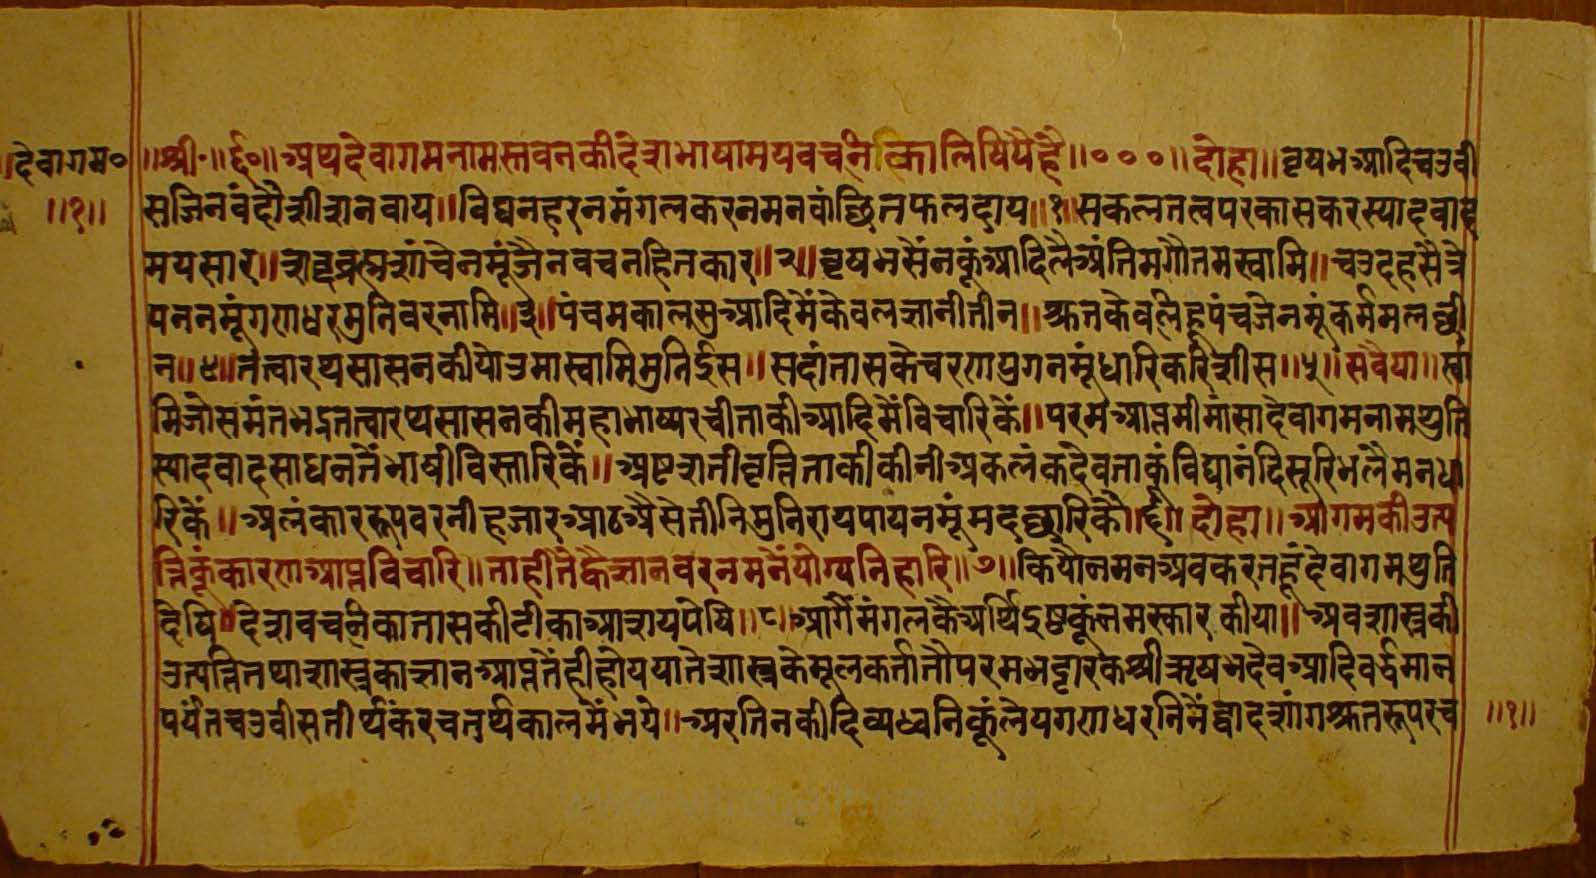 ॥देवागम॰ ॥श्री॰॥६॰॥अथ देवागमनामस्तवनकी देशभाषामय वचनिका लिषियै है॥०००॥दोहा॥वृषभ आदि चउवी
॥१॥ स जिन वंदौ शीश नवाय॥विघन हरन मंगल करन मन वांछित फल दाय॥१॥सकल तत्व परकास कर स्यादवाद
मय सार॥शब्द ब्रह्म सांचे नमूं जैन वचन हितकार॥२॥वृषभसैंनकूं आदि लै अंतिम गौतम स्वामि॥चउदहसै त्रे
पन नमूं गणधर मुनिवर नामि॥३॥पंचमकाल सु आदिमें केवल ज्ञानी तीन॥श्रुतकेवलिहू पंच जे नमूं कर्ममल छी
न॥४॥तत्वारथ सासन कीयो उमास्वामि मुनिईस॥सदां तासके चरण युग नमूं धारि करि शीस॥५॥सवैया॥स्वा
मि जो समंतभद्र तत्वारथ सासनकी महाभाष्य रची ताकी आदिमें विचारिकें॥परम आप्तमीमांसा देवागम नाम थुति
स्यादवाद साधनतें भाषी विस्तारिकें॥अष्टशती वृत्ति ताकी कीनी अकलंकदेव ताकूं विद्यानंदि सूरि भलै मन धा
रिकें॥अलंकाररूप वरनी हजार आठ औसे तीनि मुनिराय पाय नमूं मद छारिकैं॥६॥दोहा॥आगमकी उत्प
त्तिकूं कारण आप्त विचारि॥ताहीतें ह्वै ज्ञान वर नमनैं योग्य निहारि॥७॥कियौ नमन अव करत हूं देवागम थुति
देषि॥देशवचनिका तासकी टीका आशय पेषि॥८॥आगैं मंगलकै अर्थि इष्टकूं नमस्कार कीया॥अव शास्त्रकी
उत्पत्ति तथा शास्त्रका ज्ञान आप्ततैं ही होय यातें शास्त्रके मूलकर्ता तौ परमभट्टारक श्रीऋषभदेव आदि वर्द्धमान
पर्यंत चउवीस तीर्थंकर चतुर्थकालमैं भये॥अर तिनकी दिव्यध्वनिकूं लेय गणधरनिनैं द्वादशांग श्रुतरूप रच ॥१॥